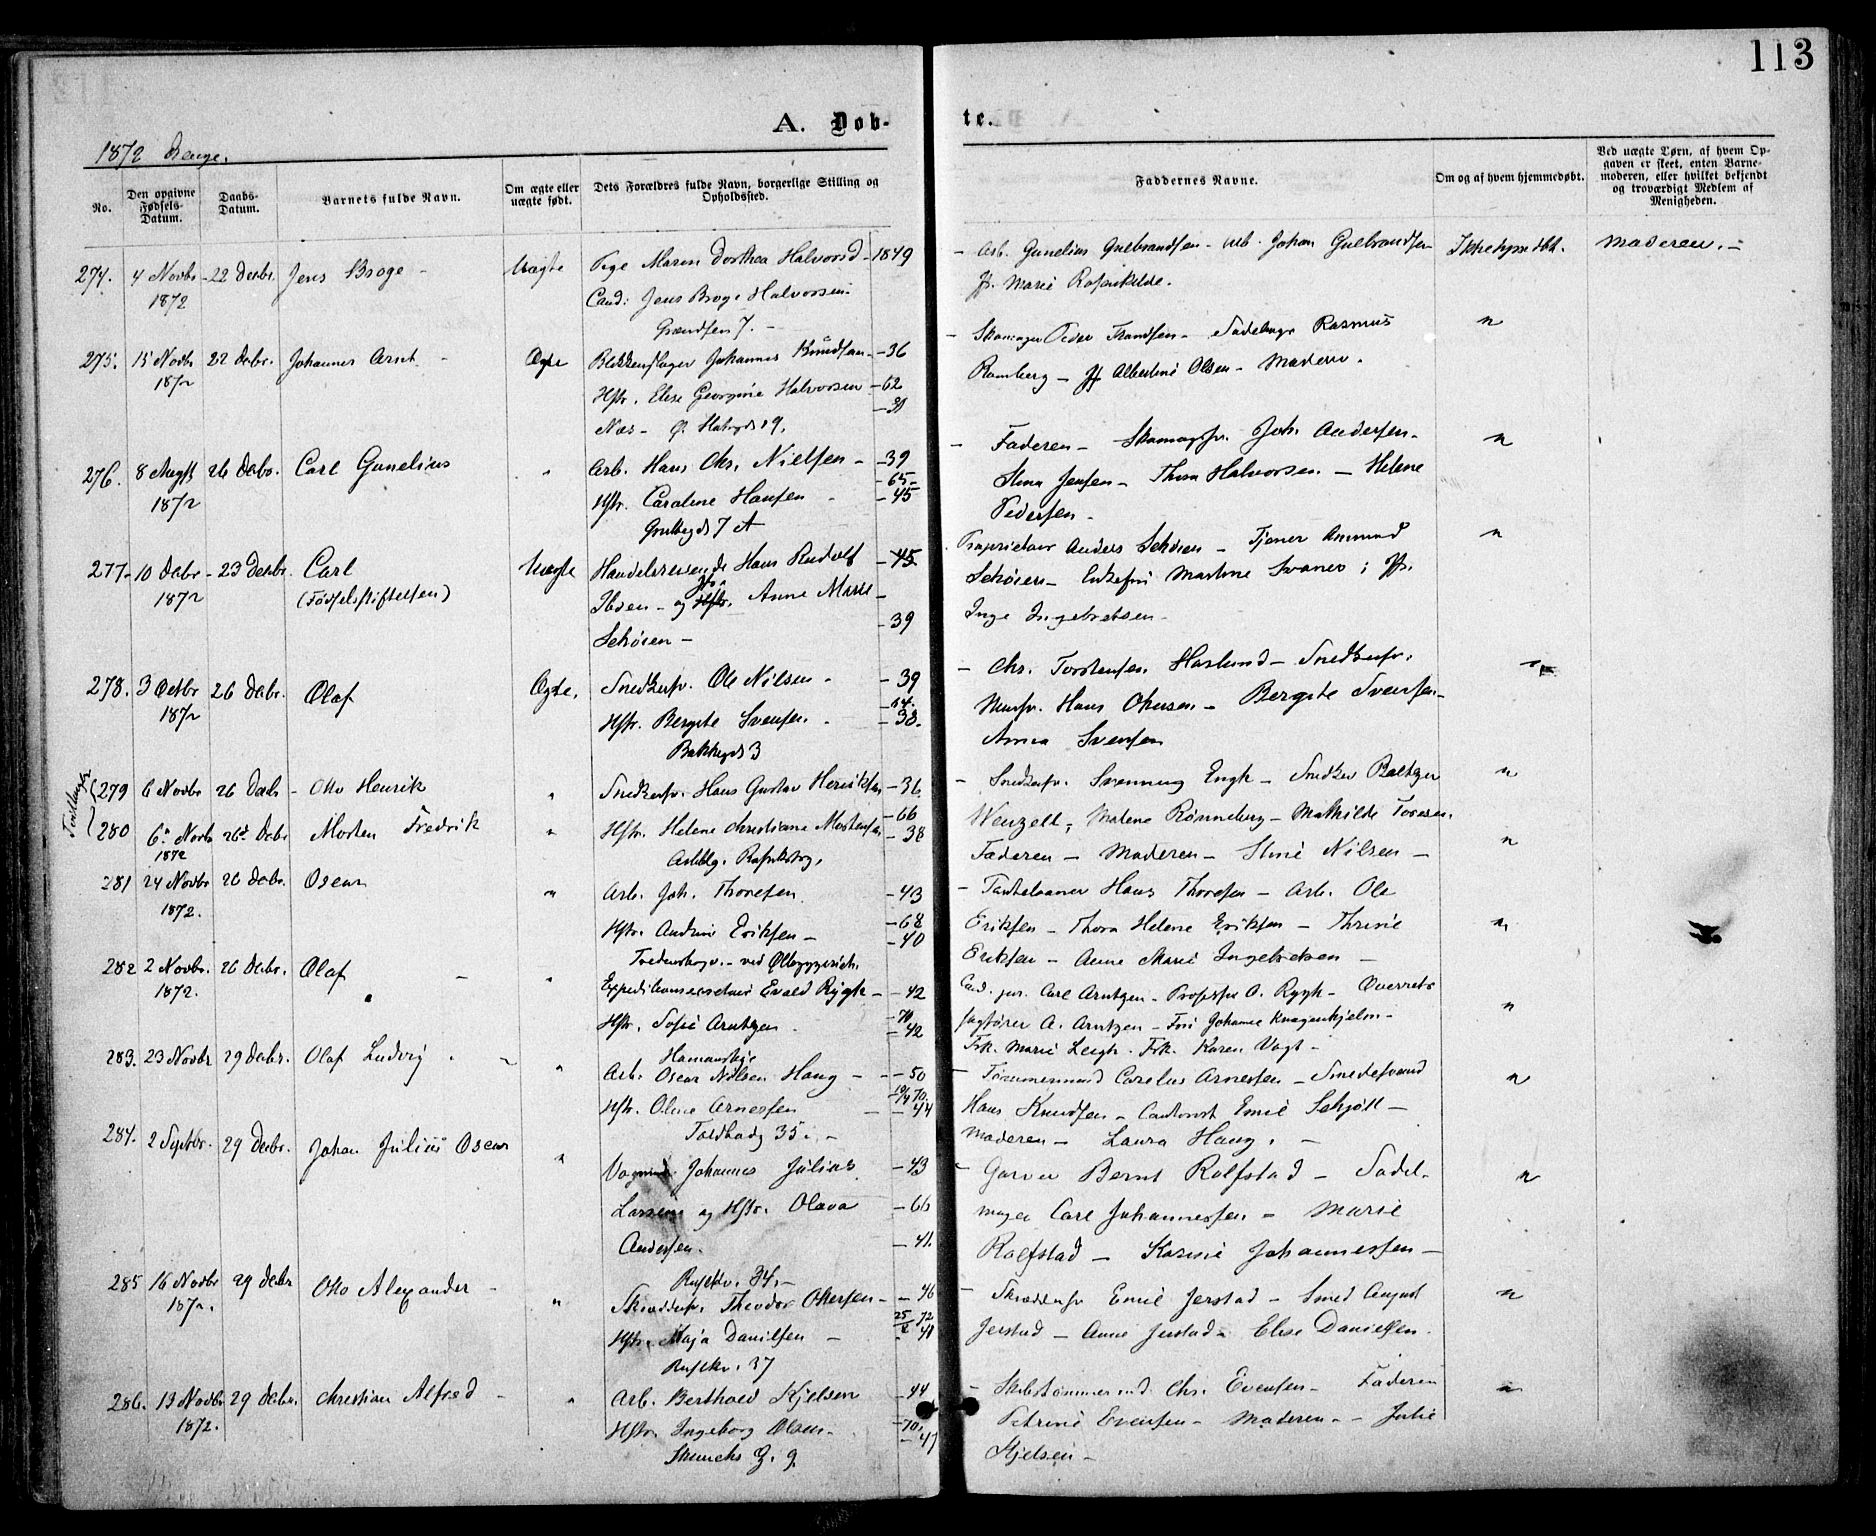 113
A. Døb- te.
1872 Drenge.
No. Den opgivne Fødsels-Datum. Daabs-Datum. Barnets fulde Navn. Om ægte eller uægte født. Dets Forældres fulde Navn, borgerlige Stilling og Opholdssted. Faddernes Navne. Om og af hvem hjemmedøbt. Ved uægte Børn, af hvem Opgaven er skeet, enten Barnemoderen, eller hvilket bekjendt og troværdigt Medlem af Menigheden.
274. 4 Novbr 1872 - 22 Decbr. Jens Broge - Uægte
Pige Maren Dorthea Halvorsd - 1849
Cand: Jens Broge Halvorsen.
Grændsen 7. -
- Arb. Gunelius Gulbrandsen - Arb. Johan Gulbrandsen
Jf. Marie Rosenkilde.
Ikke hjmdbt. Moderen. -
275. 15 Novbr 1872 22 Decbr. Johannes Arnt - Ægte
Blikkenslager Johannes Knudsen - 36
Hstr. Elise Georgine Halvorsen - 62
Næs - Ø.
- Skomager Peder Frandsen - Sadelmager Rasmus
Ramberg - Jf Albertine Olsen - Moderen.
276. 8 Augst 1872 26 Decbr. Carl Gunelius "
Arb. Hans Chr. Nielsen - 39
- 65 -
Hstr. Caroline Hansen - 45
7 A
- Faderen - Skomagsv. Joh. Andersen -
Stina Jensen - Thina Halvorsen - Helene
Pedersen -
277. 10 Decbr 1872 - 23 Decbr. Carl Uægte
(Fødselsstiftelsen)
Handelsreisende Hans Rudolf - 45
Ibsen - og Hstr. Anne Marie -
Schøien - - 39
Proprietair Anders Schøien - Tjener Amund
Schøien - Enkefru Martine Svanes; Jf.
Inge Ingebretsen -
278. 3 Octbr 1872 26 Decbr. Olaf Ægte.
Snedkersv. Ole Nilsen - - 39
64.
Hstr. Bergete Svensen - - 38.
Bakkegd 3
- Chr. Torstensen Haslund - Snedkersv.
Mursv. Hans Olsen - Bergete Svensen -
Anna Svensen
Tvillinger
279 6 Novbr 26 Decbr - Otto Henrik "
Snedkersv. Hans Gustav Henriksen - 36.
- 66
- Snedkersv. Svenning Engh - Snedker Baltzer
Wenzell, Malene Rønneberg - Mathilde Toresen.
280 6te Novbr 1872 26de Decbr Morten Fredrik "
Hstr. Helene Christiane Mortensen - 38
Faderen - Moderen - Stine Nilsen -
281 24 Novbr 1872. 26 Decbr. Oscar "
Arb. Joh. Thoresen - 43
- 68
Hstr. Andrine Eriksen - - 40
Fredensborgv. - ved Ølbryggerich.
- Hans Thoresen - Arb. Ole
Eriksen - Thora Helene Eriksen - Thrine
Eriksen - Anne Marie Ingebretsen -
282 2 Novbr. 1872. 26 Decbr. Olaf - "
Expeditionssecretair Evald Rygh - - 42
- 70
Hstr. Sofie Arntzen - - 42
Homansbye
Cand. jur. Carl Arntzen - Professor O. Rygh - Overrets
sagfører A. Arntzen - Fru Johanne Knagenhjelm -
Frk. Marie Leigh. Frk. Karen Vogt -
283. 23 Novbr 29 Decbr. Olaf Ludvig "
Arb. Oscar Nilsen Haug - - 50
19/4 70.
Hstr. Oline Arnessen - - 44
Toldbodg 35. -
- Tømmermand Carelus Arnessen - Smedesvend
Hans Knudsen - Emil Schjøtt -
Moderen - Laura Haug. -
284. 2 Septbr. 29 Decbr. Johan Julius Oscar "
Vognmd. Johannes Julius - 43
Larsen og Hstr. Olava - 66
Andersen. - 41.
34. -
- Garver Bernt Rolfstad - Sadel-
mager Carl Johannessen - Marie
Rolfstad - Karine Johannessen -
285 16 Novbr 1872. 29 Decbr Otto Alexander - "
Skræddersv. Theodor Olsen - - 46
25/2 72
Hstr. Maja Danielsen - - 48
37
- Skræddersv Emil Jerstad - Smed August
Jerstad - Anne Jerstad - Elise Danielsen.
286. 13 Novbr 1872. 29 Decbr. Christian Alfred - "
Arb. Berthold Kjelsen - 44
- 70.
Hstr. Ingeborg Olsen - - 47
Muncks G. 9
- Skibstømmermd. Chr. Evensen - Faderen
Petrine Evensen - Moderen - - Julie
Kjelsen -